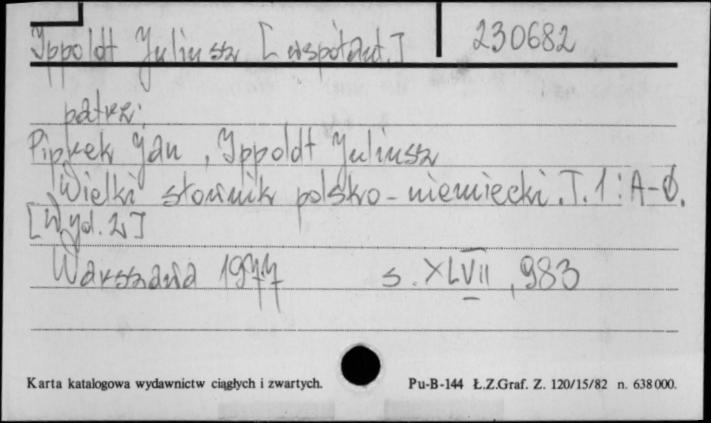 Ippoldt Juliusz [współaut.] 230682
patrz:
Piprek Jan, Ippoldt Juliusz
Wielki słownik polsko-niemiecki. T. 1: A-Ó.
[Wyd. 2]
Warszawa 1977 s. XLVII, 983
Karta katalogowa wydawnictw ciągłych i zwartych. Pu-B-144 Ł.Z.Graf. Z. 120/15/82 n. 638000.